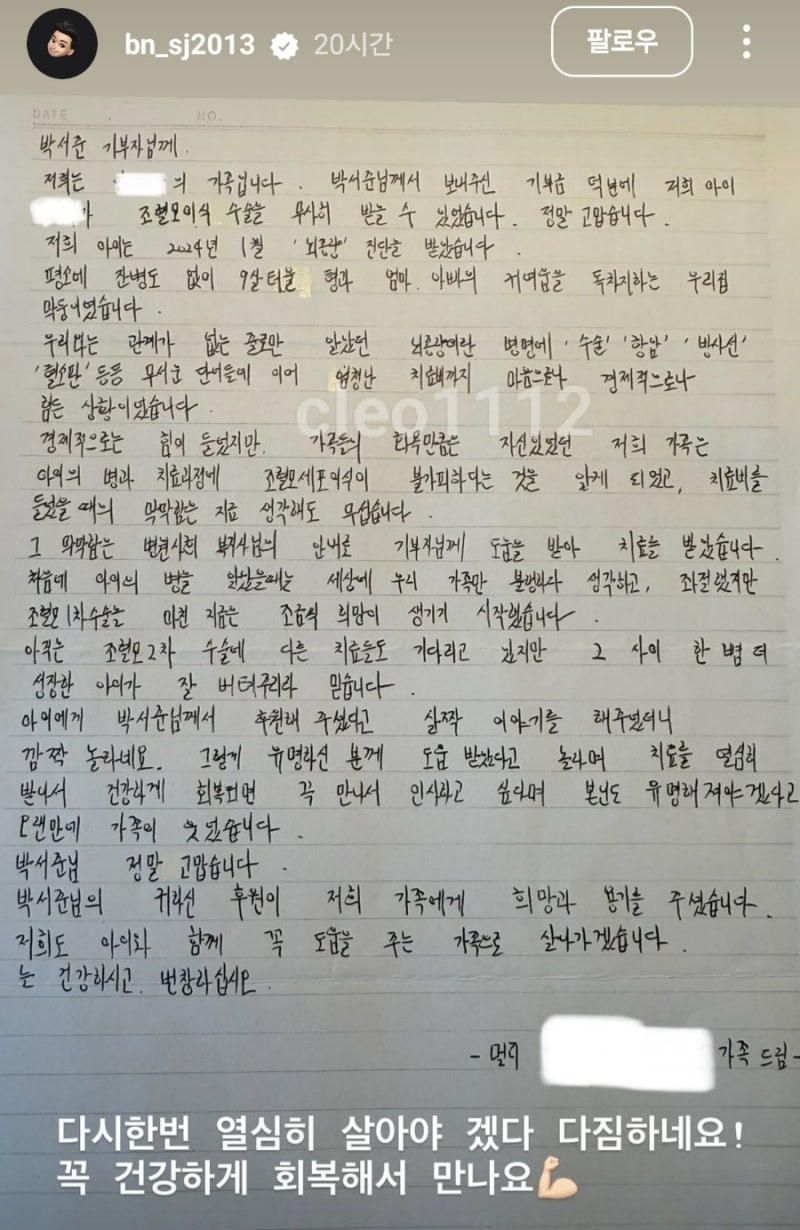 bn_sj2013 20시간 팔로우
DATE . . NO.
박서준 기부자님께.
저희는 의 가족입니다. 박서준님께서 보내주신 기부금 덕분에 저희 아이
가 조혈모이식 수술을 무사히 받을 수 있었습니다. 정말 고맙습니다.
저희 아이는 2024년 1월 '뇌종양' 진단을 받았습니다.
평소에 잔병도 없이 9살 터울 형과 엄마, 아빠의 귀여움을 독차지하는 우리집
막둥이였습니다.
우리와는 관계가 없는 줄로만 알았던 뇌종양이란 병명에 '수술' '항암' '방사선'
'혈소판' 등등 무서운 단어들에 이어 엄청난 치료비까지 마음으로나 경제적으로나
힘든 상황이었습니다.
cleo1112
경제적으로는 힘이 들었지만, 가족들의 화목만큼은 자신있었던 저희 가족은
아이의 병과 치료과정에 조혈모세포이식이 불가피하다는 것을 알게 되었고, 치료비를
들었을 때의 막막함은 지금 생각해도 무섭습니다.
그 막막함은 병원사회 복지사님의 안내로 기부자님께 도움을 받아 치료를 받았습니다.
처음에 아이의 병을 알았을때는 세상에 우리 가족만 불행하다 생각하고, 좌절했지만
조혈모1차수술을 마친 지금은 조금씩 희망이 생기기 시작했습니다.
아직은 조혈모2차 수술에 다른 치료들도 기다리고 있지만 그 사이 한 뼘 더
성장한 아이가 잘 버텨주리라 믿습니다.
아이에게 박서준님께서 후원해 주셨다고 살짝 이야기를 해주었더니
깜짝 놀라네요. 그렇게 유명하신 분께 도움 받았다고 놀라며 치료를 열심히
받아서 건강하게 회복되면 꼭 만나서 인사하고 싶다며 본인도 유명해져야겠다고
오랜만에 가족이 웃었습니다.
박서준님 정말 고맙습니다.
박서준님의 귀하신 후원이 저희 가족에게 희망과 용기를 주셨습니다.
저희도 아이와 함께 꼭 도움을 주는 가족으로 살아가겠습니다.
늘 건강하시고 번창하십시오.
- 멀리 가족 드림-
다시한번 열심히 살아야 겠다 다짐하네요!
꼭 건강하게 회복해서 만나요💪🏻